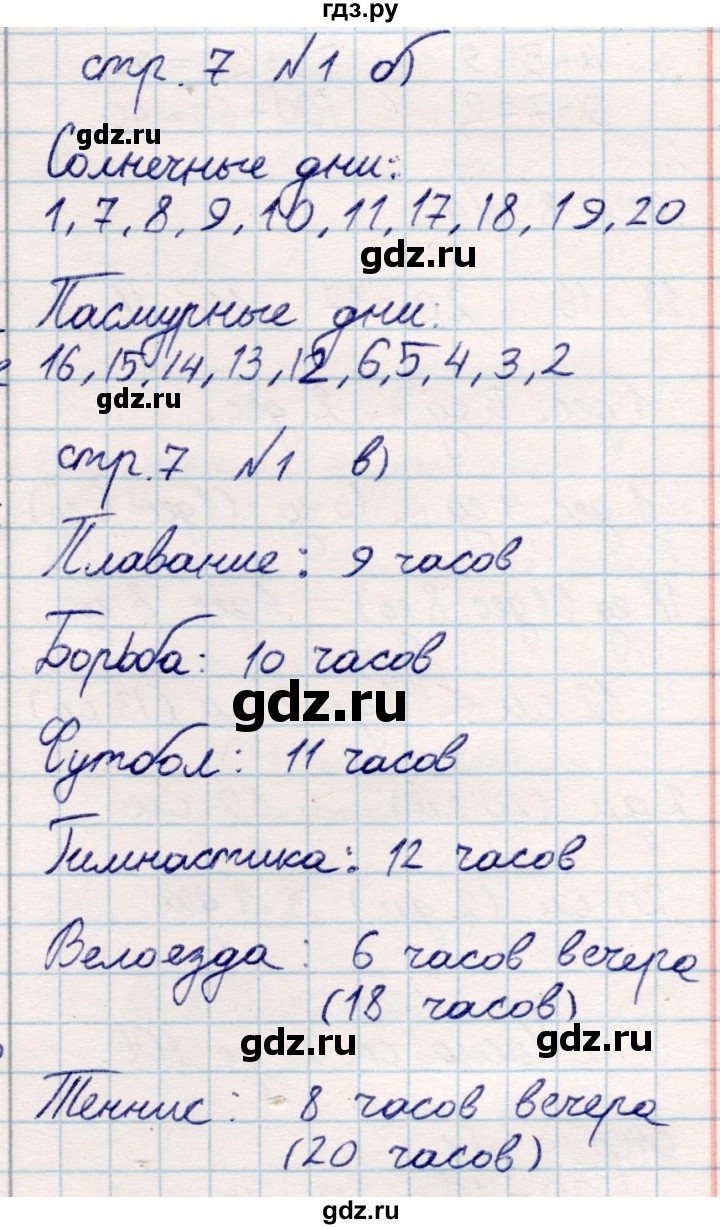 гдз.ру
стр. 7 №1 б)
gdz.ru
Солнечные дни:
1, 7, 8, 9, 10, 11, 17, 18, 19, 20
gdz.ru
Пасмурные дни:
16, 15, 14, 13, 12, 6, 5, 4, 3, 2
gdz.ru
стр. 7 №1 в)
Плавание: 9 часов
Борьба: 10 часов
gdz.ru
Футбол: 11 часов
Гимнастика: 12 часов
Велоезда: 6 часов вечера
(18 часов)
gdz.ru gdz.ru
Теннис: 8 часов вечера
(20 часов)
gdz.ru